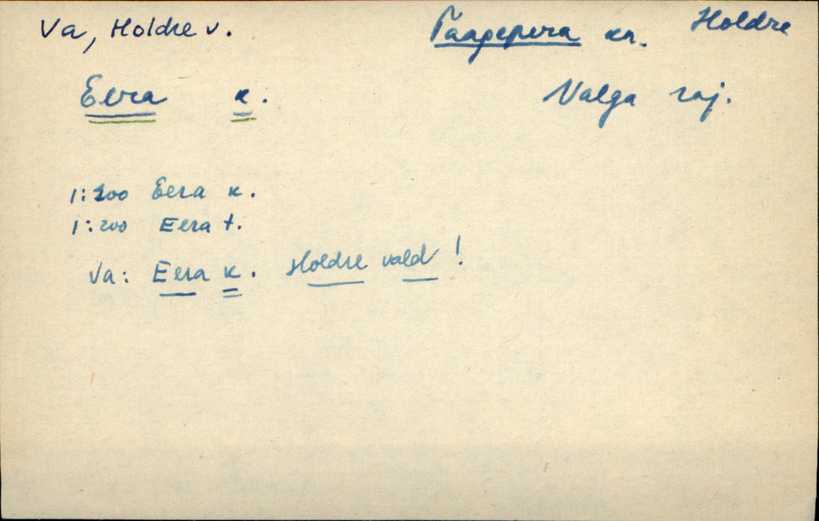 Va, Holdre v.
Taagepera kn. Holdre
Eera k.
Valga raj.
1:200 Eera k.
1:200 Eera t.
Va: Eera k. Holdre vald!